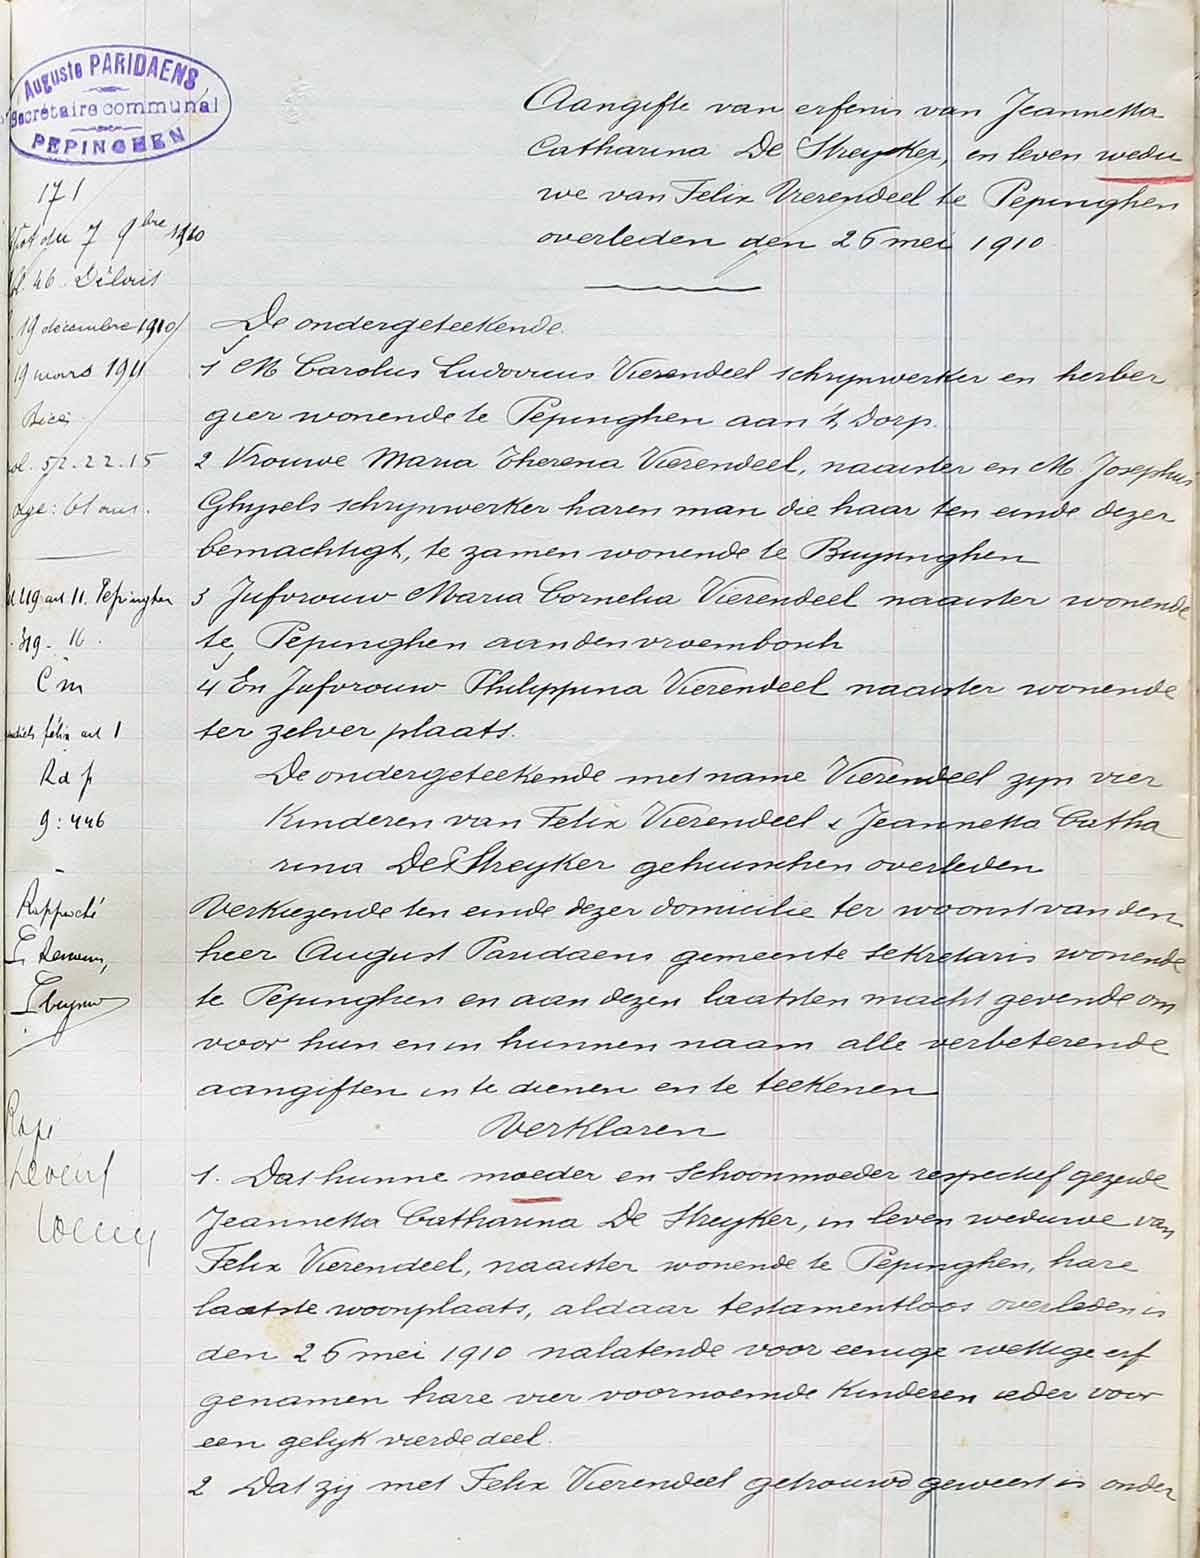 Auguste PARIDAENS
Secrétaire communal
PEPINGHEN
Aangifte van erfenis van Jeannetta
Catharina De Streyker, in leven wedu
we van Felix Vierendeel te Pepinghen
overleden den 26 mei 1910
171
du 7 9bre 1910
46 Délais
19 décembre 1910
19 mars 1911
52.22.15
age: 61 ans.
art 11. Pepinghen
319
Cm
félix art 1
Rd p
9:446
De ondergeteekende
1 M Carolus Ludovicus Vierendeel schrynwerker en herber
gier wonende te Pepinghen aan 't Dorp.
2 Vrouwe Maria Theresia Vierendeel, naaister en M. Josephus
Ghysels schrynwerker haren man die haar ten einde dezer
bemachtigt, te zamen wonende te Buysinghen
3 Jufvrouw Maria Cornelia Vierendeel naaister wonende
te Pepinghen aan den
4 En Jufvrouw Philippina Vierendeel naaister wonende
ter zelver plaats.
De ondergeteekende met name Vierendeel zyn vier
Kinderen van Felix Vierendeel & Jeannetta Catha
rina De Streyker gehuischen overleden
Verkiezende ten einde dezer domicilie ter woonst van den
heer August Paridaens gemeente sekretaris wonende
te Pepinghen en aan dezen laatsten macht gevende om
voor hun en in hunnen naam alle verbeterende
aangiften in te dienen en te teekenen
Verklaren
1. Dat hunne moeder en Schoonmoeder respectief gezeide
Jeannetta Catharina De Streyker, in leven weduwe van
Felix Vierendeel, naaister wonende te Pepinghen, hare
laatste woonplaats, aldaar testamentloos overleden is
den 26 mei 1910 nalatende voor eenige wettige erf
genamen hare vier voornoemde Kinderen ieder voor
een gelyk vierde deel.
2 Dat zij met Felix Vierendeel getrouwd geweest is onder